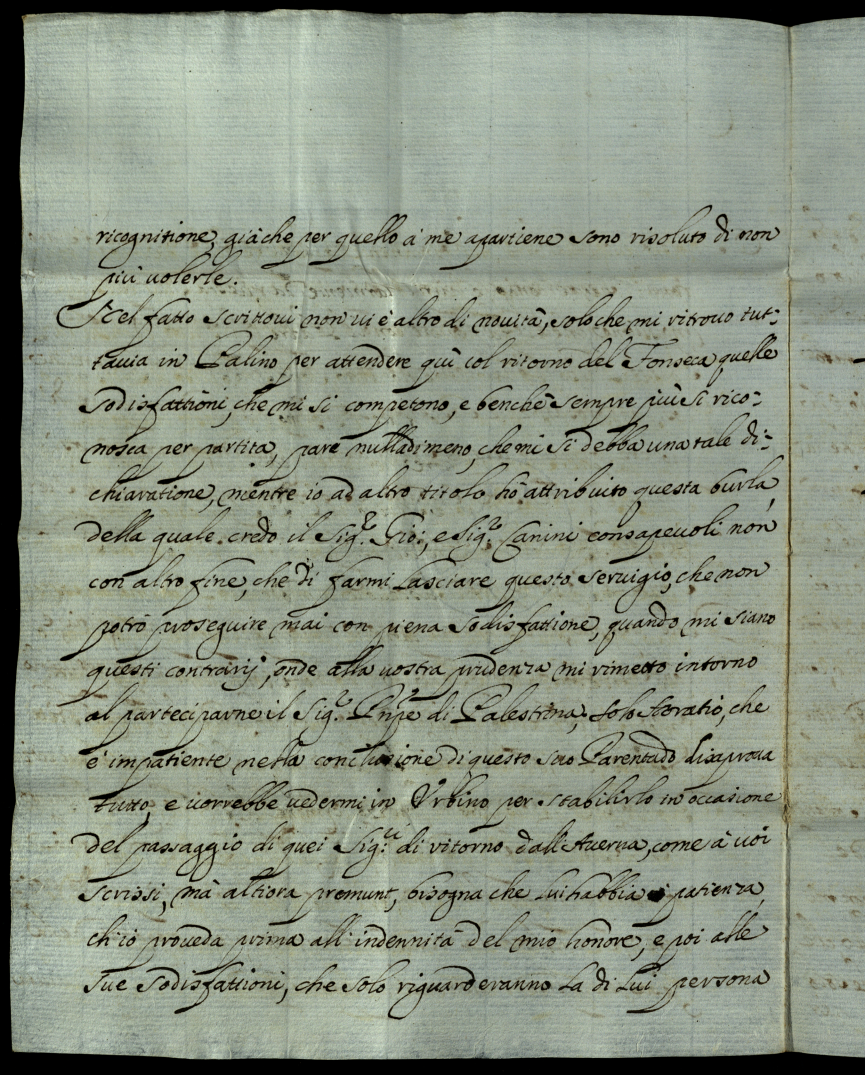 ricognitione, già che per quello à me apartiene sono risoluto di non
più volerle.
Nel fatto scrittoui non ui è altro di nouità, solo che mi ritrouo tut:
tauia in Palino per attendere quì col ritorno del Fonseca quelle
sodisfattioni, che mi si competono, e benche sempre più si rico:
nosca per partita, pare nulladimeno, che mi si debba una tale di:
chiaratione, mentre io ad altro titolo hò attribuito questa burla,
della quale credo il Sig.r Gio:, e Sig.r Canini consapeuoli non
con altro fine, che di farmi lasciare questo seruigio, che non
potrò proseguire mai con piena sodisfattione, quando mi siano
questi contrarij, onde alla uostra prudenza mi rimetto intorno
al participarne il Sig.r Pnpe di Palestrina, solo Horatio, che
è impatiente nella conclusione di questo suo Parentado disaproua
tutto, e uorrebbe uedermi in Urbino per stabilirlo in occasione
del passaggio di quei Sig.ri di ritorno dall'Auerna, come à uoi
scrissi, mà altiora premunt, bisogna che lui habbia patienza,
ch'io proueda prima all'indennità del mio honore, e poi alle
sue sodisfattioni, che solo riguarderanno la di lui persona